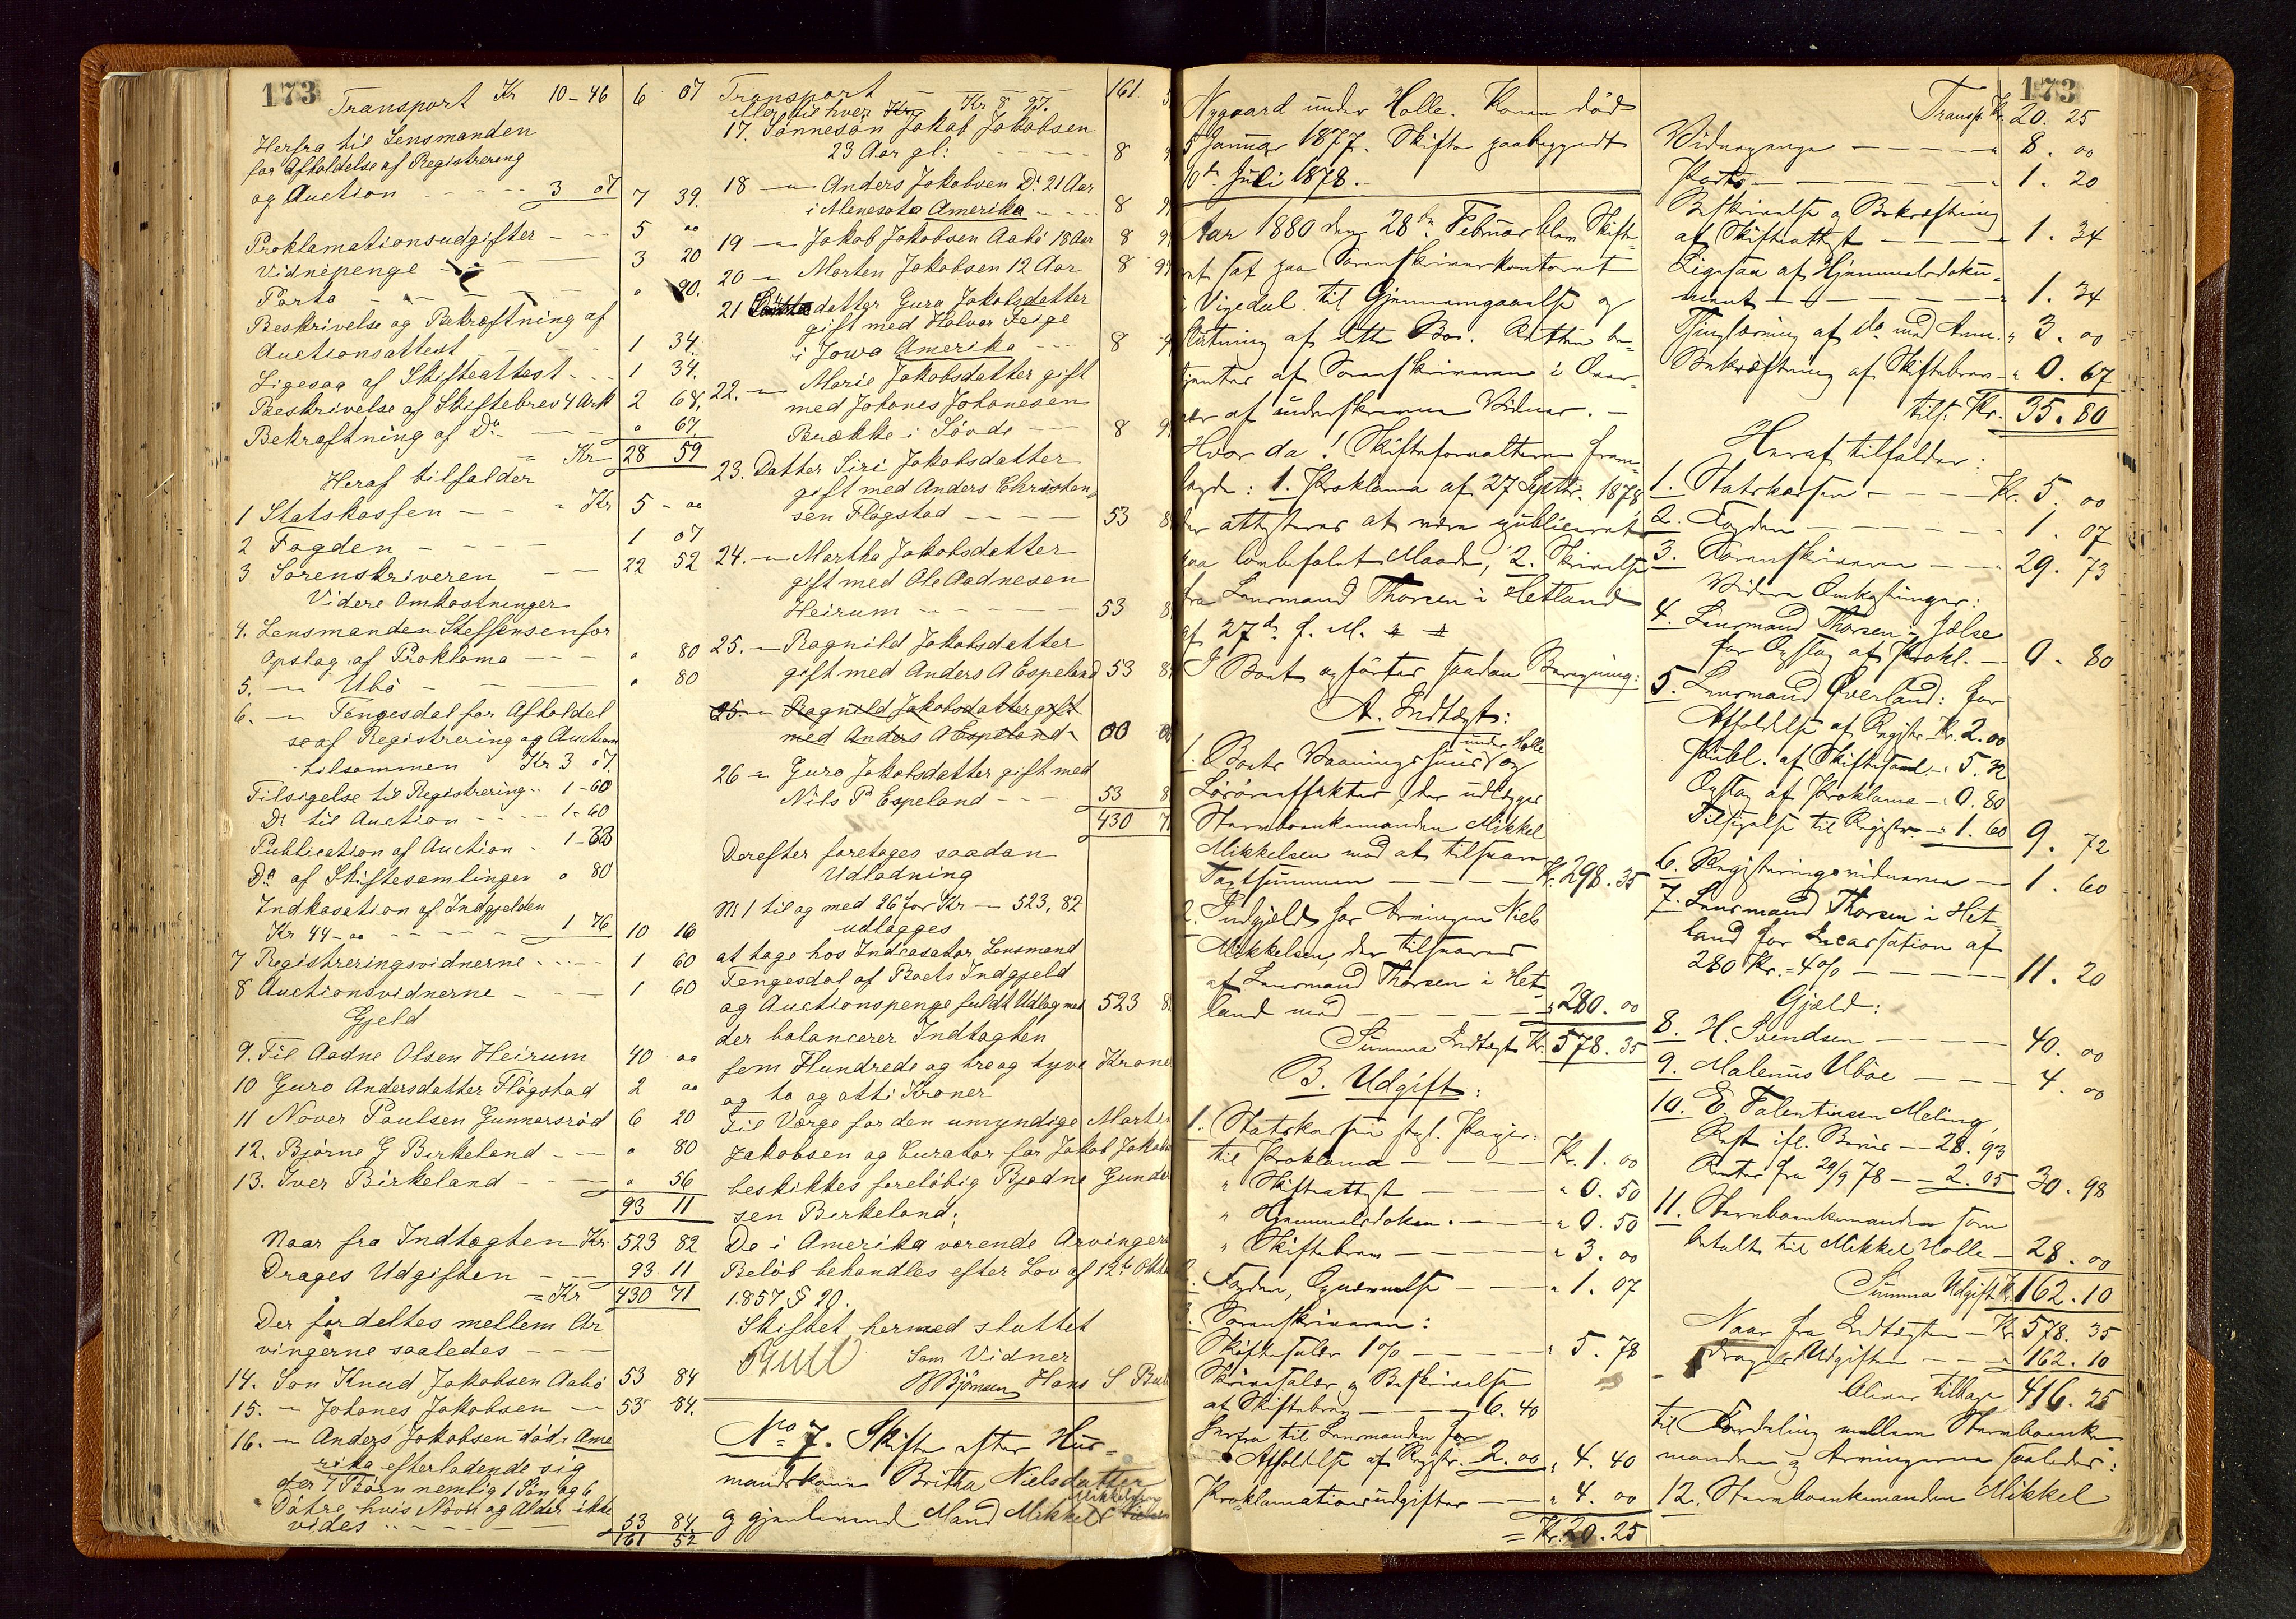 173
Transport Kr 10-46 6 07
Herfra til Lensmanden
for Afholdelse af Registrering
og Auction - - - - 3 07 7 39.
Proklamationsudgifter - - - 5 00
Vidnepenge - - - 3 20
Porto - - - - " 90.
Beskrivelse og Bekræftning af
Auctionsattest - - - 1 34.
Ligesaa af Skifteattest - - - 1 34.
Beskrivelse af Skiftebrev 4 Ark 2 68.
Bekræftning af Do - - - " 67.
= Kr 28 59
Heraf tilfalder
1 Statskassen - - = Kr 5 - 00
2 Fogden - - - - 1 07
3 Sorenskriveren - - 22 52
Videre Omkostninger
4. Lensmanden Steffensen for
Opslag af Proklama - - - " 80
5. - " Ubø - - - " 80
6. - " Tengesdal for Afholdel
se af Registrering og Auction
tilsammen Kr 3 07.
Tilsigelse til Registrering - - 1-60
Do til Auction - - - - 1-60
Publication af Auction - 1-33
Do af Skiftesamlinger " 80
Indkasation af Indgjelden
Kr 44-00 - - - - 1 76 10 16
7 Registreringsvidnerne - - - - 1 60
8 Auctionsvidnerne - - - 1 60
Gjeld
9. Til Aadne Olsen Heirum 40 00
10 Guro Andersdatter Fløgstad 2 00
11 Nover Paulsen Gunnarsrød 6 20
12. Bjørne G Birkeland - - - " 80
13. Iver Birkeland - - - - " 56
93 11
Naar fra Indtægten Kr 523 82
Drages Udgiften - - 93 11
= Kr 430 71
Der fordeltes mellem Ar
vingerne saaledes - - -
14. Søn Knud Jakobsen Aabø 53 84
15. - " Johanes Jakobsen - " 53 84.
16. - " Anders Jakobsen død i Ame
rika efterladende sig
der 7 Børn nemlig 1 Søn og 6
Døtre hvis Navn og Alder ikke
vides - - - - 53 84
161 52
Transport - - - 161 5
eller til hver Kr 8 97.
17. Sønnesøn Jakob Jakobsen
23 Aar gl: - - - - - 8 9
18 - " Anders Jakobsen Do 21 Aar
i Menesota Amerika - - - 8 9
19 - " Jakob Jakobsen Aabø 18 Aar 8 9
20 - " Morten Jakobsen 12 Aar 8 9
21 datter Guro Jakobsdatter
gift med Halvor Teige
i Jowa Amerika - - - 8 9
22. - " Marie Jakobsdatter gift
med Johanes Johanesen
Brække i Søvde - - - 8 9
23. Datter Siri Jakobsdatter
gift med Anders Christen
sen Fløgstad - - - - 53 8
24. - " Martha Jakobsdatter
gift med Ole Aadnesen
Heirum - - - - - 53 8
25. - " Ragnild Jakobsdatter
gift med Anders A Espeland 53 8
25. - " Ragnild Jakobsdatter gift
med Anders A Espeland - 00 00
26 - " Guro Jakobsdatter gift med
Nils P Espeland - - - 53 8
430 7
Derefter foretages saadan
Udlodning
No 1 til og med 26 for Kr - 523, 82
udlægges
at tage hos Indcasator Lensmand
Tengesdal af Boets Indgjeld
og Auctionspenge fuldt Udlæg med 523 8
der balancerer Indtægten
fem Hundrede og tre og tyve Krone
og to og otti Kroner
Til Værge for den umyndige Morten
Jakobsen og Curator for Jakob Jakobs
beskikkes foreløbig Bjødne Gunder
sen Birkeland.
De i Amerika værende Arvingers
Beløb behandles efter Lov af 12te Okto
1857 § 20.
Skiftet hermed sluttet
Som Vidner
B Bjørnsen Hans S
No 7. Skifte efter Huus-
mandskone Britha Nielsdatter
og gjenlevende Mand Mikkel Mikkelsen
Nygaard under Holle. Konen død
5 Januar 1877. Skifte paabegyndt
10de Juli 1878.
Aar 1880 den 28de Februar blev Skifte-
ret sat paa Sorenskriverkontoret
i Vigedal til Gjennemgaaelse og
Slutning af dette Bo. Retten be-
tjentes af Sorenskriveren i Over-
vær af underskrevne Vidner. -
Hvor da! Skifteforvalteren frem-
lagde: 1. Proklama af 27 Septbr. 1878,
der attesteres at være publiceret
paa lovbefalet Maade, 2. Skrivelse
fra Lensmand Thorsen i Hetland
af 27de f. M.
I Boet opførtes saadan Beregning:
A. Indtægt:
1. Boets Vaaningshuus under Holle og
Løsøreeffekter, der udlægges
Stervboenkemanden Mikkel
Mikkelsen mod at tilsvare
Taxtsummen - - - - Kr. 298. 35
2. Indgjeld hos Arvingen Niels
Mikkelsen, der tilsvares
af Lensmand Thorsen i Het-
land med - - - - " 280. 00
Summa Indtægt Kr. 578. 35
B. Udgift:
1. Statskassen stpl. Papir:
til Proklama - - - - Kr. 1. 00
" Skifteattest - - - - " 0. 50
" Hjemmelsdokum. - - - " 0. 50
" Skiftebrev - - - - " 3. 00
2. Fogden, Opnævnelse - - " 1. 07
3. Sorenskriveren:
Skiftesalær 1% - - - - " 5. 78
Skrivesalær og Beskrivelse
af Skiftebrev - - - - 6. 40
herfra til Lensmanden for
Afholdelse af Registr. 2. 00 " 4. 40
Proklamationsudgifter - - " 4. 00
= Kr. 20. 25
173
Transp. Kr. 20. 25
Vidnepenge - - - - " 8. 00
Porto - - - - " 1. 20
Beskrivelse og Bekræftning
af Skifteattest - - - - " 1. 34
Ligesaa af Hjemmelsdoku-
ment - - - - - " 1. 34
Thinglæsning af do med Ann. " 3. 00
Bekræftning af Skiftebrev - " 0. 67
tils. Kr. 35. 80
Heraf tilfalder:
1. Statskassen - - - - Kr. 5. 00
2. Fogden - - - - - 1. 07
3. Sorenskriveren - - - 29. 73
Videre Omkostninger:
4. Lensmand Thorsen i Jelse
for Opslag af Prokl. - 0. 80
5. Lensmand Qverland: for
Afholdelse af Registr. Kr. 2. 00
Publ. af Skiftesaml. - " 5. 32
Opslag af Proklama - " 0. 80
Tilsigelse til Registr. - " 1. 60 9. 72
6. Registreringsvidnerne - 1. 60
7. Lensmand Thorsen i Het-
land for Incassation af
280 Kr. = 4% - - - - 11. 20
Gjæld:
8. H. Svendsen - - - - 40. 00
9. Malenus Ubøe - - - 4. 00
10. E. Falentinsen Meling,
Rest ifl. Bevis - 28. 93
Renter fra 29/9 78 - - 2. 05 30. 98
11. Stervboenkemanden som
betalt til Mikkel Holle - 28. 00
Summa Udgift Kr. 162. 10
Naar fra Indtægten - Kr. 578. 35
drages Udgiften - - - " 162. 10
bliver tilbage 416. 25
til Fordeling mellem Stervboenke-
manden og Arvingerne saaledes:
12. Stervboenkemanden Mikkel